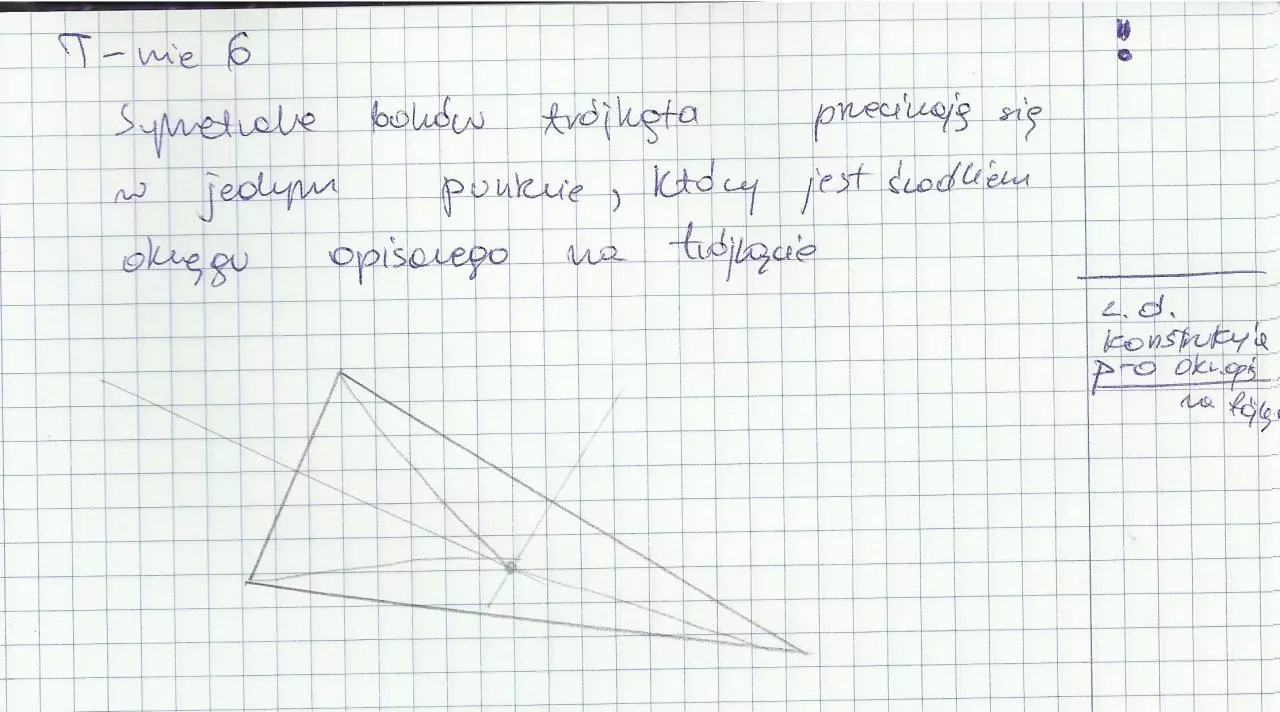 T-nie 6
Symetralne boków trójkąta przecinają się
w jednym punkcie, który jest środkiem
okręgu opisanego na trójkącie
c.d.
konstrukcja
p-o okr. opis
na trójką